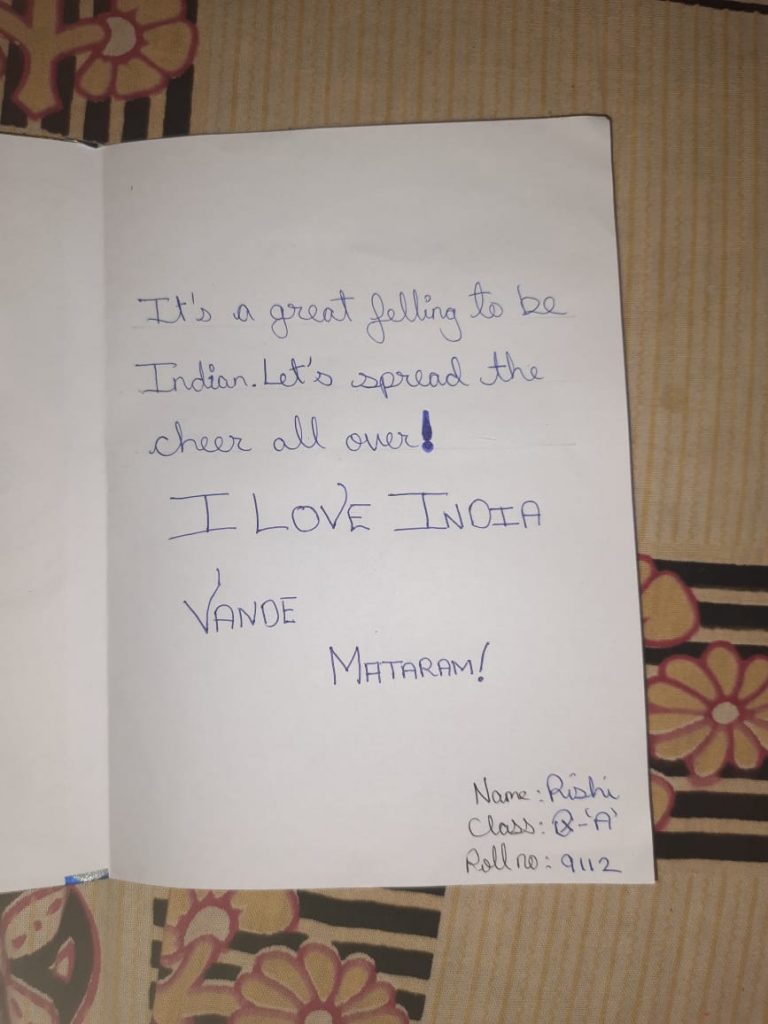 It's a great felling to be
Indian. Let's spread the
cheer all over!
I LOVE INDIA
VANDE
MATARAM!
Name: Rishi
Class: IX-'A'
Roll no: 9112